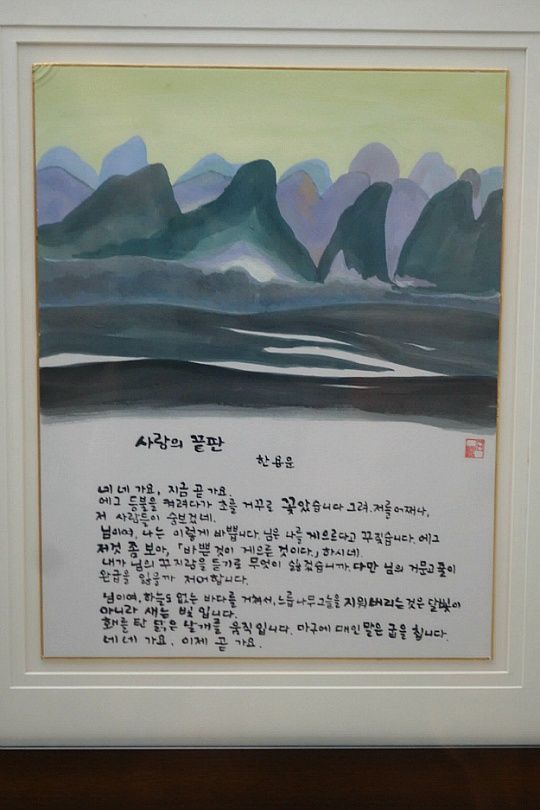 사랑의 끝판
한용운
네 네 가요, 지금 곧 가요.
에그 등불을 켜려다가 초를 거꾸로 꽂았습니다 그려. 저를 어쩌나,
저 사람들이 숭보겄네.
님이여, 나는 이렇게 바쁩니다. 님은 나를 게으르다고 꾸짖습니다. 에그
저것 좀 보아, 「바쁜 것이 게으른 것이다.」 하시네.
내가 님의 꾸지람을 듣기로 무엇이 싫겄습니까. 다만 님의 거문고줄이
완급을 잃을까 저어합니다.
님이여, 하늘도 없는 바다를 거쳐서, 느릅나무 그늘을 지워버리는 것은 달빛이
아니라 새는 빛입니다.
홰를 탄 닭은 날개를 움직입니다. 마구에 매인 말은 굽을 칩니다.
네 네 가요, 이제 곧 가요.